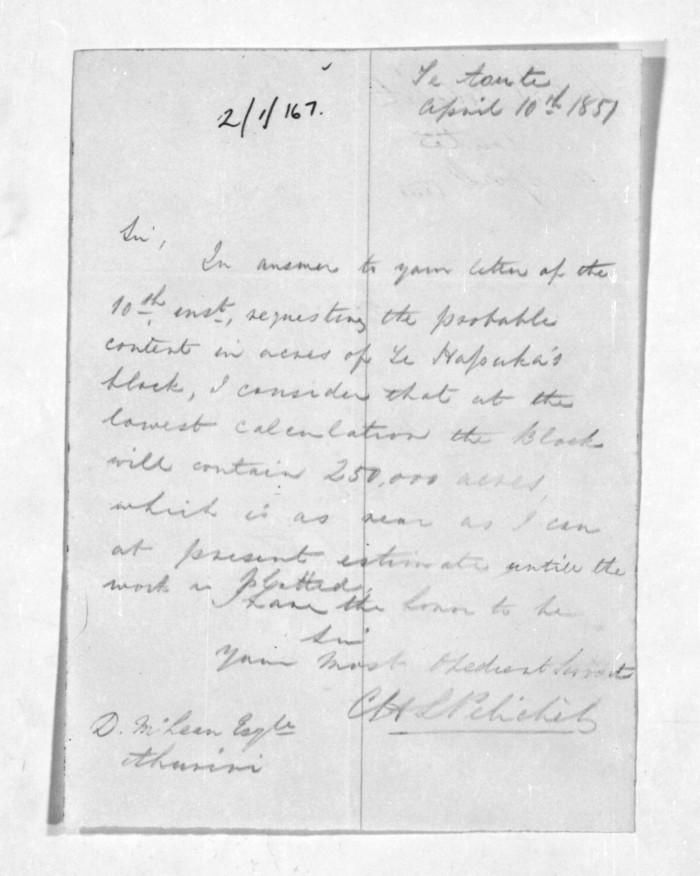 Te Aute
April 10th 1851
2/1/167.
Sir,
In answer to your letter of the
10th inst, requesting the probable
content in acres of Te Hapuka's
block, I consider that at the
lowest calculation the block
will contain 250,000 acres,
which is as near as I can
at present estimate untill the
work is plotted.
I have the honor to be
Sir
Your Most Obedient Servant
C H L Pelichet
D. McLean Esqre
Ahuriri